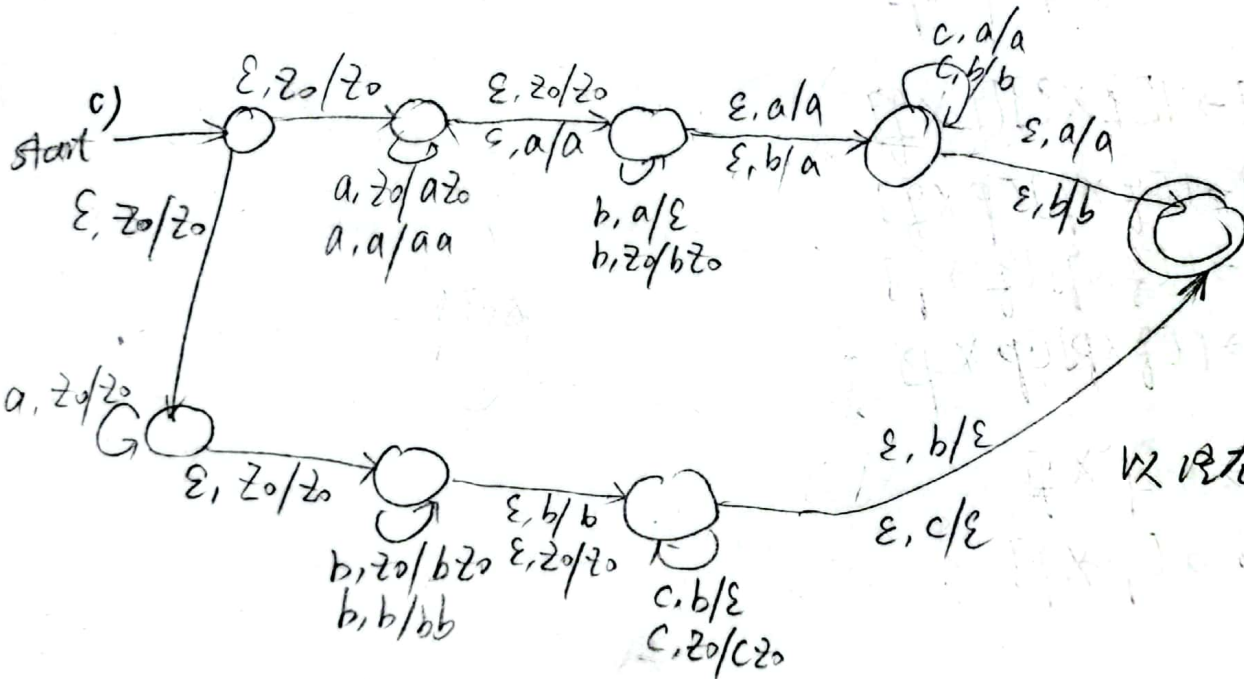 c)
start
ε, z₀/z₀
ε, z₀/z₀
ε, a/a
ε, a/a
ε, b/b
c, a/a
c, b/b
ε, a/a
ε, b/b
a, z₀/az₀
a, a/aa
b, a/ε
b, z₀/bz₀
ε, z₀/z₀
a, z₀/z₀
ε, z₀/z₀
b, z₀/bz₀
b, b/bb
ε, b/b
ε, z₀/z₀
c, b/ε
c, z₀/cz₀
ε, b/ε
ε, c/ε
以